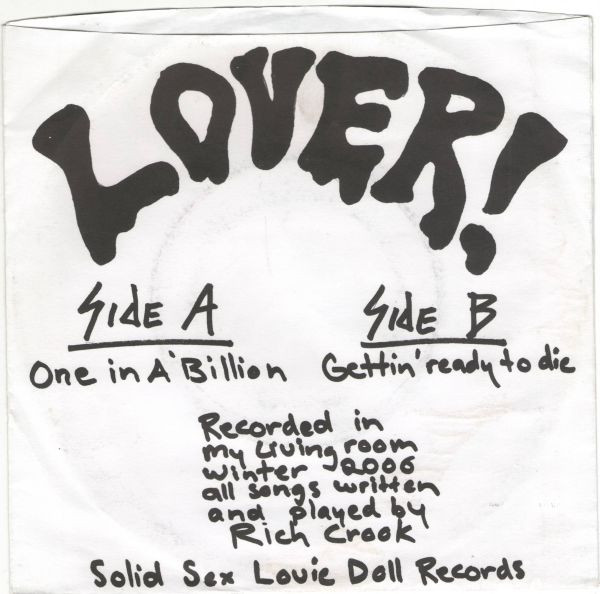 LOVER!
Side A
Side B
One in A Billion
Gettin' ready to die
Recorded in
my living room
winter 2006
all songs written
and played by
Rich Crook
Solid Sex Lovie Doll Records